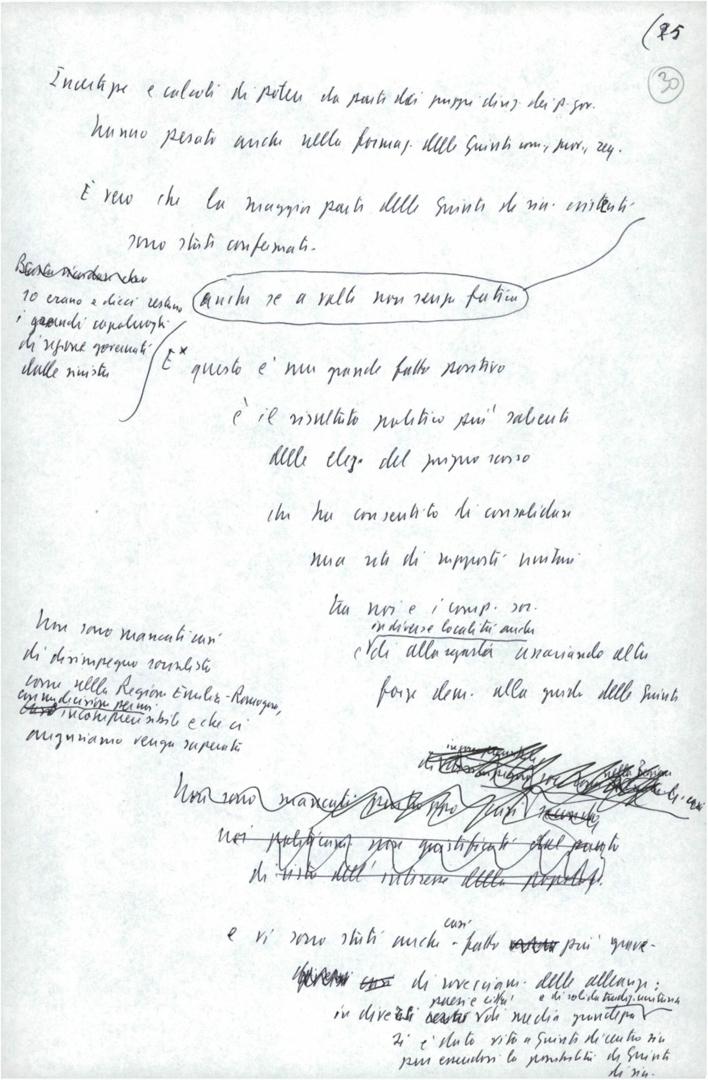 (25
30
Incertezze e calcoli di potere da parte dei gruppi dirig. dei p. gov.
hanno pesato anche nella formaz. delle Giunte com., prov., reg.
È vero che la maggior parte delle Giunte de sin. esistenti
sono state confermate.
anche se a volte non senza fatica
10 erano e dieci restano
i grandi capoluoghi
di regione governati
dalle sinistre
E questo è un grande fatto positivo
è il risultato politico più saliente
delle elez. del giugno scorso
che ha consentito di consolidare
una rete di rapporti unitari
tra noi e i comp. soc.
in diverse località anche
e di allargarla associando altre
forze dem. alla guida delle Giunte
Non sono mancati casi
di disimpegno socialista
come nella Regione Emilia-Romagna,
con una decisione per noi
incomprensibile e che ci
auguriamo venga superata
Non sono mancati purtroppo
noi politicam. non giustificati dal punto
di vista dell'interesse della popolaz.
casi
e vi sono stati anche - fatto più grave -
di rovesciam. delle alleanze:
paesi e città e di solida tradiz. unitaria
in diversi di media grandezza
si è dato vita a Giunte di centro sin
pur essendoci la possibilità di Giunte
di sin.